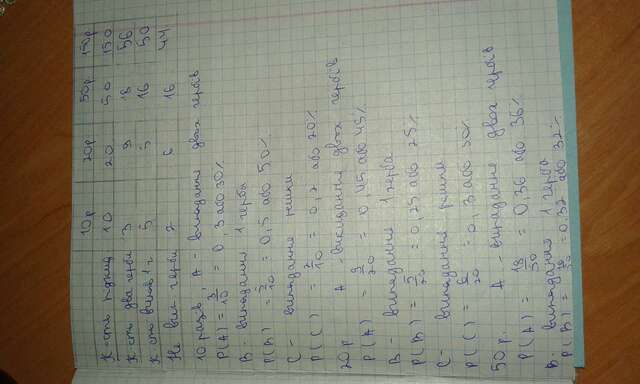 10р 20р 50р 150р
К-сть підкид 10 20 50 150
К-сть два герби 3 9 18 56
К-сть випав 1 г 5 5 16 50
Не вип герби 2 6 16 44
10 разів, А - випадання двох гербів
P(A) = 3/10 = 0,3 або 30%
В - випадання 1 герба
P(B) = 5/10 = 0,5 або 50%
С - випадання решки
P(C) = 2/10 = 0,2 або 20%
20р А - випадання двох гербів
P(A) = 9/20 = 0,45 або 45%
В - випадання 1 герба
P(B) = 5/20 = 0,25 або 25%
С - випадання решки
P(C) = 6/20 = 0,3 або 30%
50р. А - випадання двох гербів
P(A) = 18/50 = 0,36 або 36%
В - випадання 1 герба
P(B) = 16/50 = 0,32 або 32%